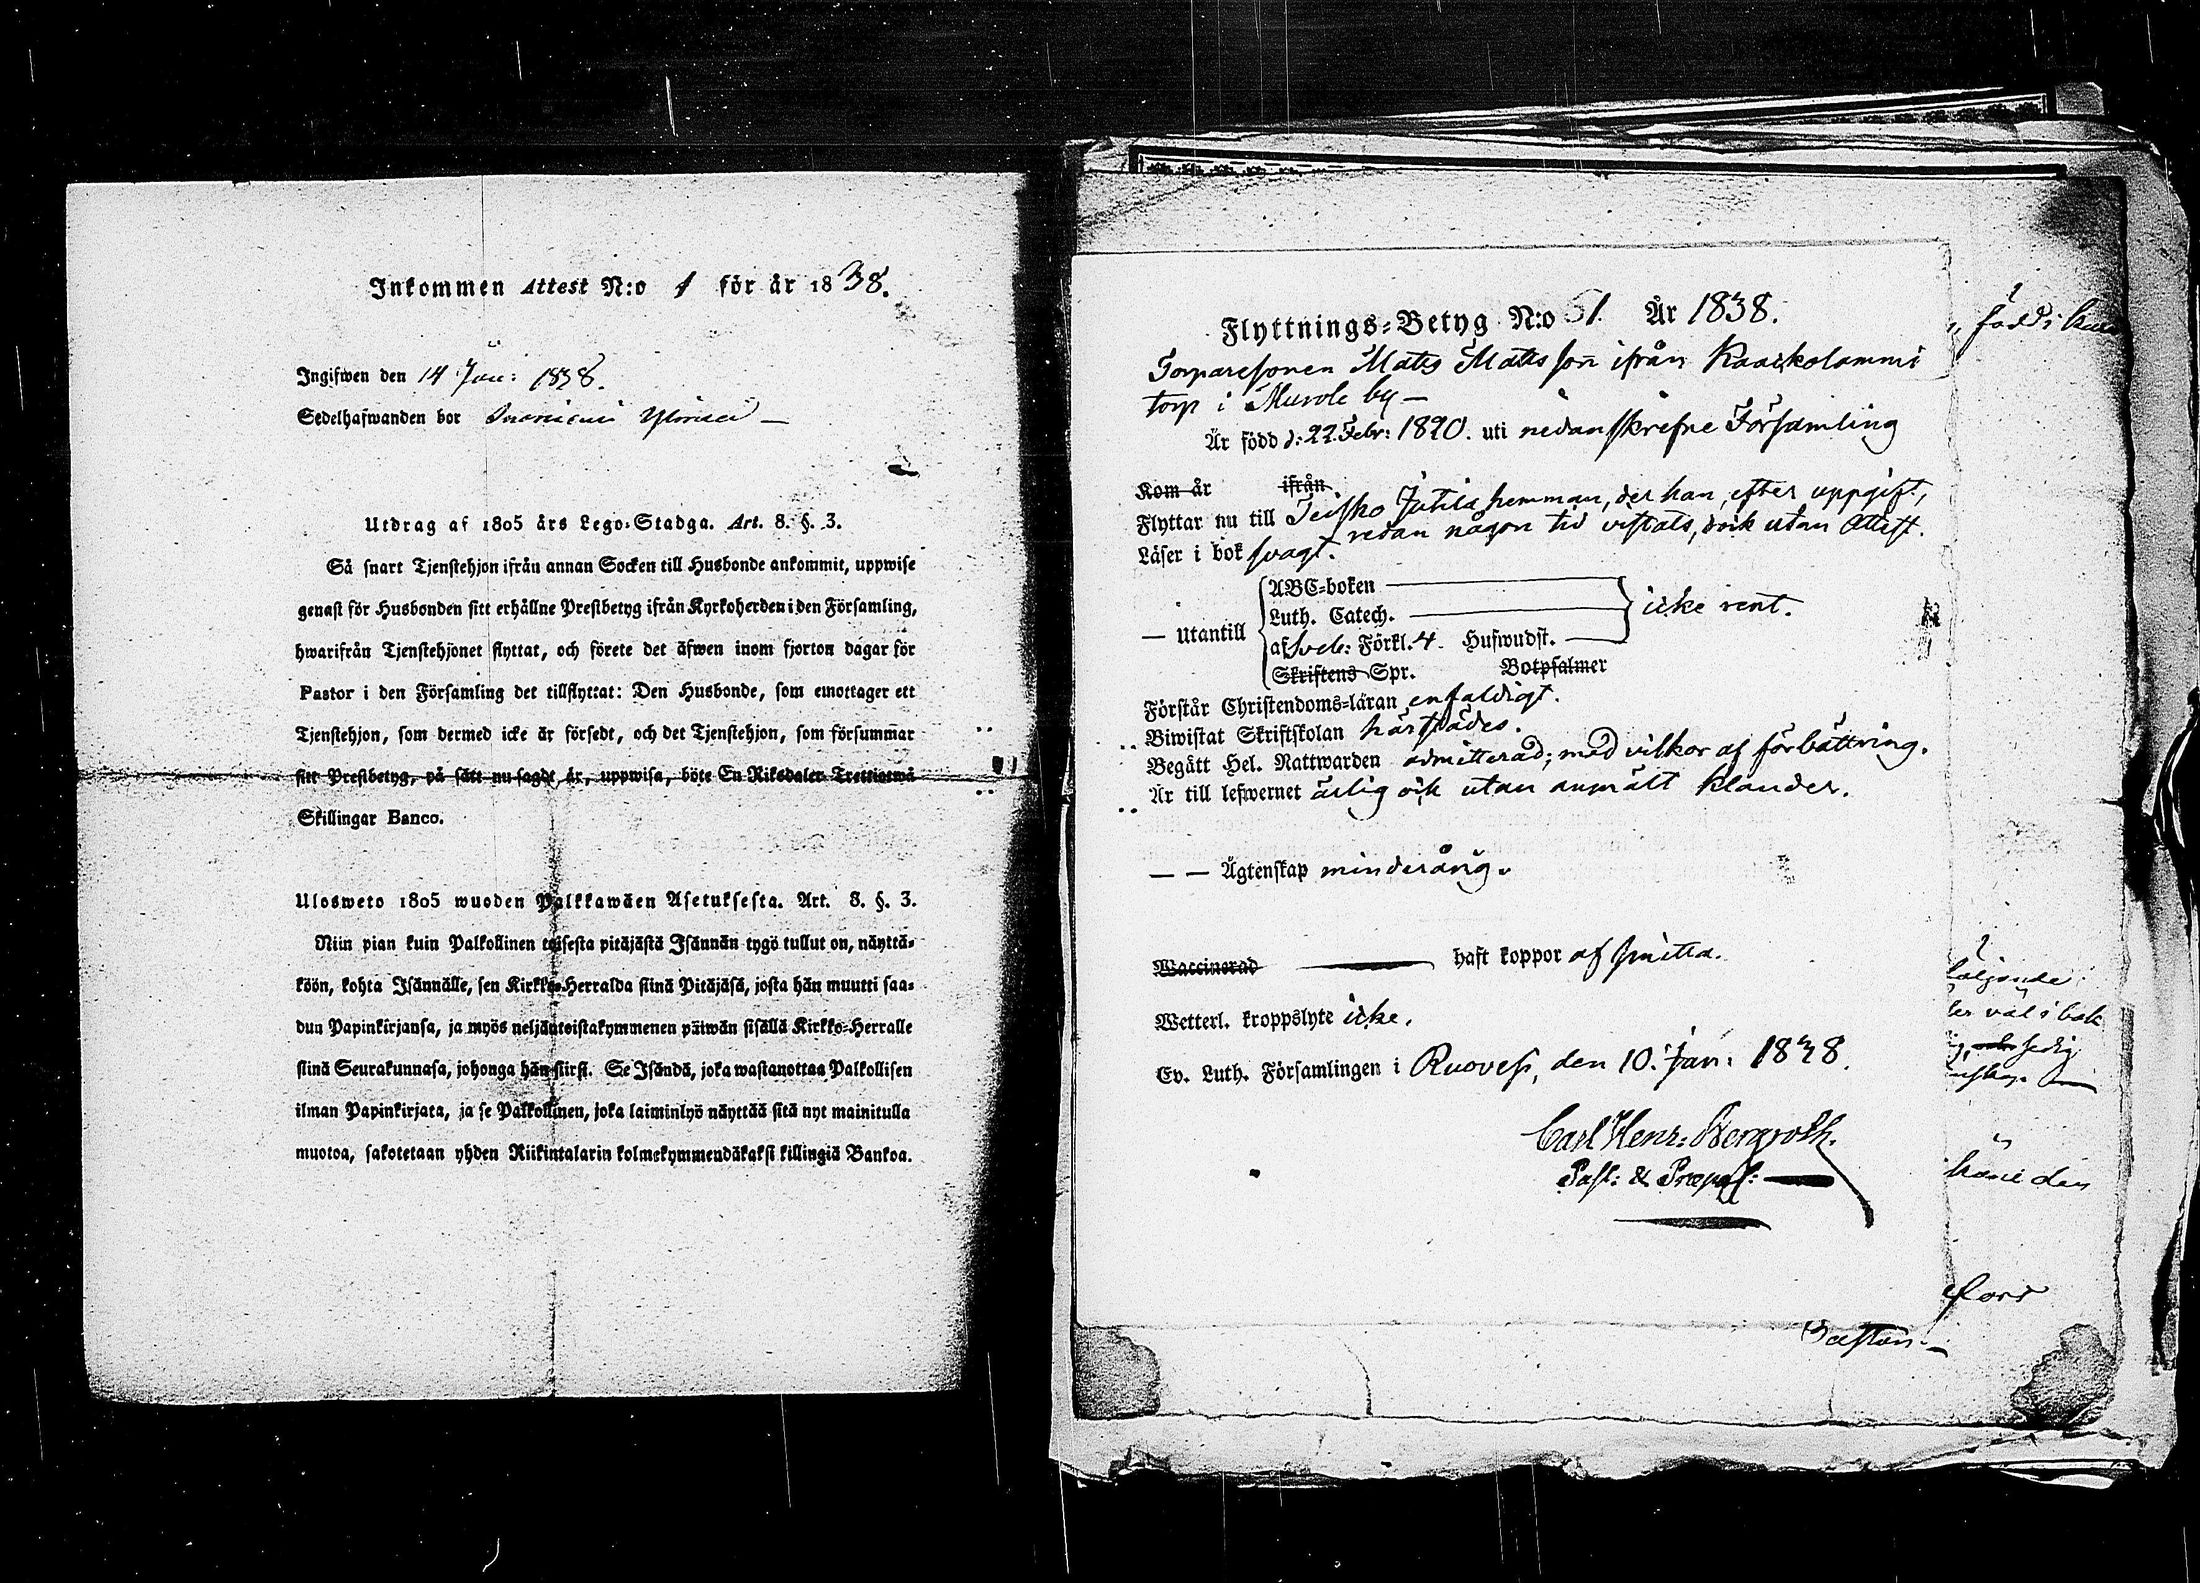 Inkommen Attest N:o 1 för år 1838.
Ingifwen den 14 Jan: 1838.
Sedelhafwanden bor
Utdrag af 1805 års Lego-Stadga. Art. 8. §. 3.
Så snart Tjenstehjon ifrån annan Socken till Husbonde ankommit, uppwise
genast för Husbonden sitt erhållne Prestbetyg ifrån Kyrkoherden i den Församling,
hwarifrån Tjenstehjonet flyttat, och förete det äfwen inom fjorton dagar för
Pastor i den Församling det tillflyttat: Den Husbonde, som emottager ett
Tjenstehjon, som dermed icke är försedt, och det Tjenstehjon, som försummar
sitt Prestbetyg, på sätt nu sagdt är, uppwisa, böte En Riksdaler Trettiotwå
Skillingar Banco.
Ulosweto 1805 wuoden Palkkawäen Asetuksesta. Art. 8. §. 3.
Niin pian kuin Palkollinen toisesta pitäjästä Isännän tygö tullut on, näyttä-
köön, kohta Isännälle, sen Kirkko-Herralda siinä Pitäjäsä, josta hän muutti saa-
dun Papinkirjansa, ja myös neljäntoistakymmenen päiwän sisällä Kirkko-Herralle
siinä Seurakunnasa, johonga hän siirsi. Se Isändä, joka wastanottaa Palkollisen
ilman Papinkirjata, ja se Palkollinen, joka laiminlyö näyttää sitä nyt mainitulla
muotoa, sakotetaan yhden Riikintalarin kolmekymmendäkaksi killingiä Bankoa.
Flyttnings-Betyg N:o 51. År 1838.
Torparesonen Mats Mattsson ifrån Kaaskolammi
torp i Murole by —
Är född d: 22 Febr: 1820. uti nedanskrefne Församling
Kom år ifrån
Flyttar nu till Teisko Jutila hemman, der han, efter uppgift,
redan någon tid vistats, dock utan Attest.
Läser i bok svagt.
— Utantill
ABC-boken
Luth. Catech.
af Sveb: Förkl. 4 Hufwudst.
Skriftens Spr. Botpsalmer
icke rent.
Förstår Christendoms-läran enfaldigt.
Biwistat Skriftskolan härstädes.
Begått Hel. Nattwarden admitterad; med vilkor af förbättring.
Är till lefwernet ärlig och utan anmält klander.
— — Ägtenskap minderårig.
Waccinerad haft koppor af smitta.
Wetterl. kroppslyte icke.
Ev. Luth. Församlingen i Ruovesi, den 10. Jan: 1838.
Carl Henr: Bergroth.
Past: & Præpos:
född i
följande
väl i bok
sedig